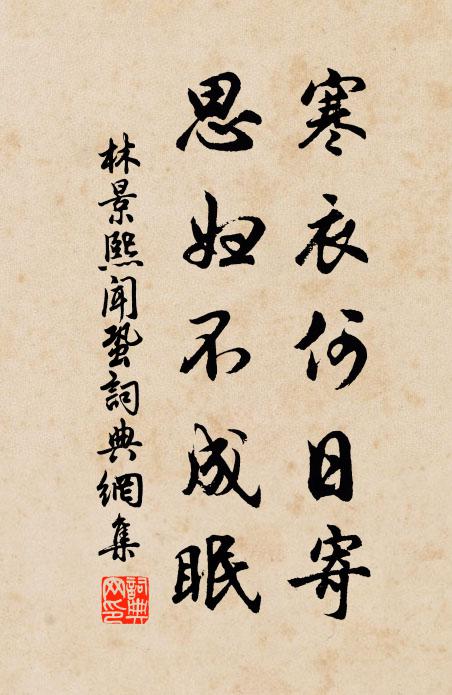 寒衣何日寄
思妇不成眠
林景熙闻蛩詞典網集
詞典网印